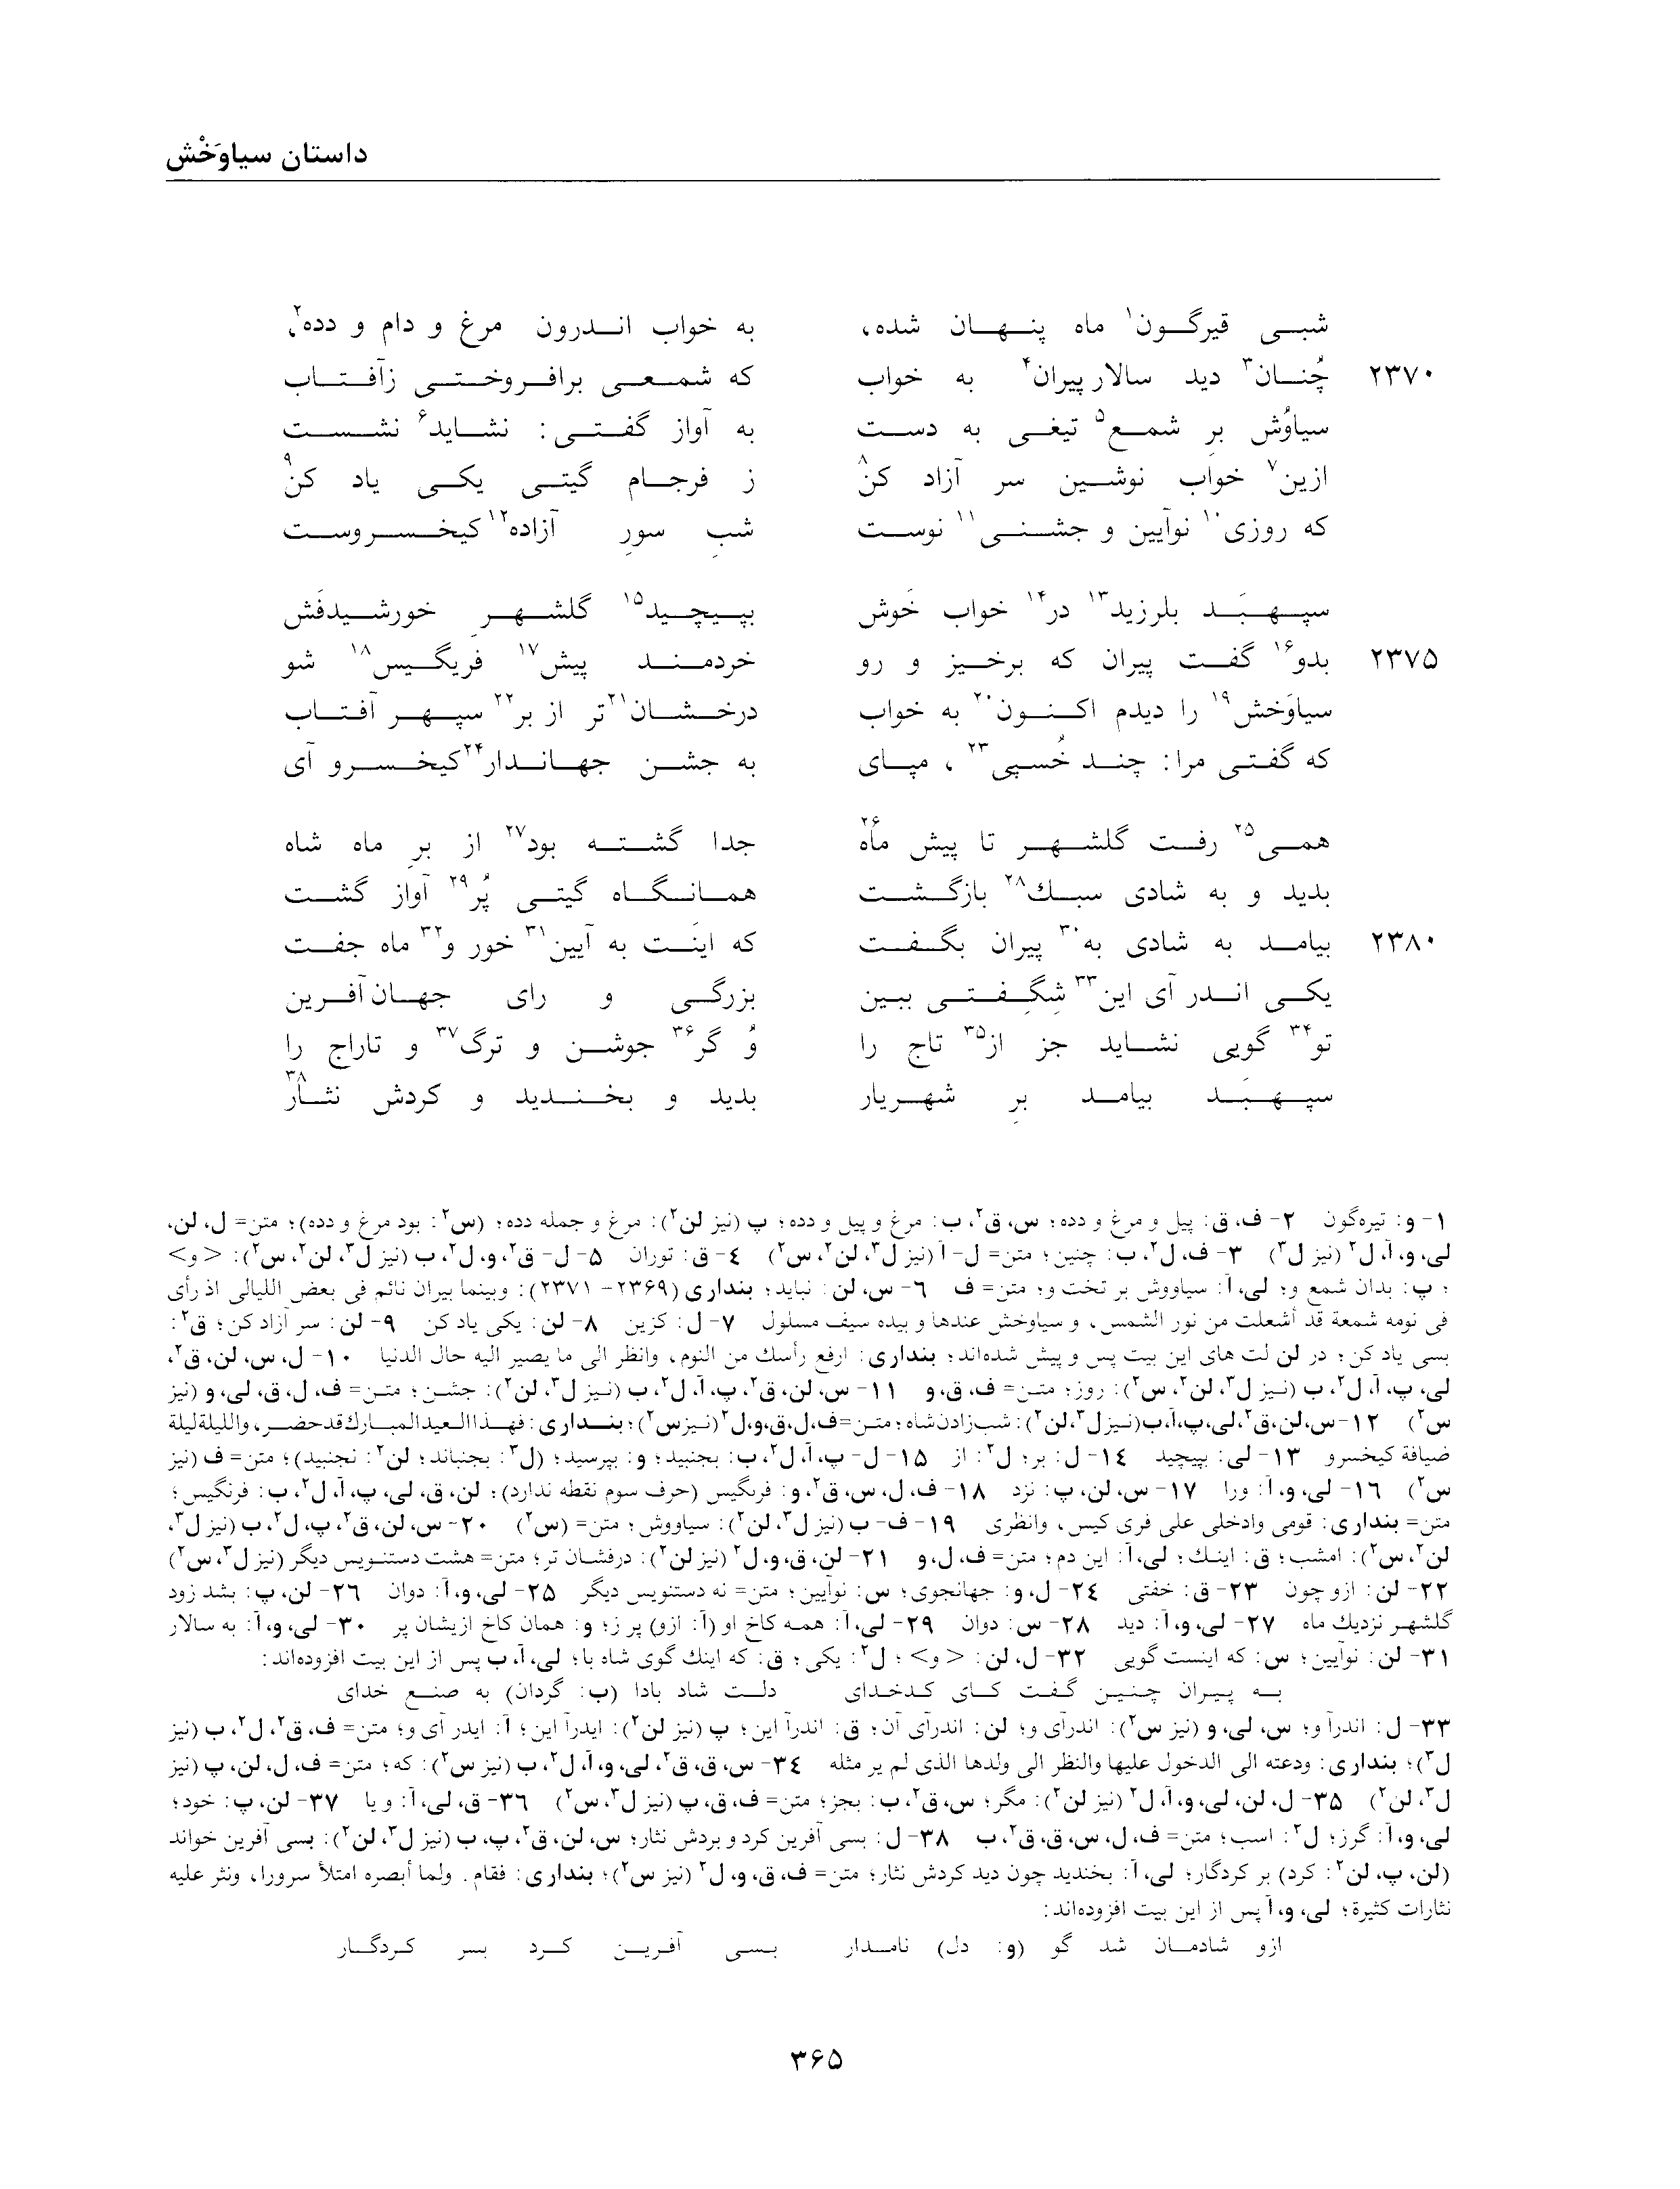 داستان سیاوَخْش
شبی قیرگون۱ ماه پنهان شده، به خواب اندرون مرغ و دام و دده۲،
۲۳۷۰ چُنان۳ دید سالار پیران۴ به خواب که شمعی برافروختی زآفتاب
سیاوُش برِ شمع۵ تیغی به دست به آواز گفتی: نشاید۶ نشست
ازین۷ خواب نوشین سر آزاد کن۸ ز فرجام گیتی یکی یاد کن۹
که روزی۱۰ نوآیین و جشنی۱۱ نوست شبِ سورِ آزاده۱۲ کیخسروست
سپهبَد بلرزید۱۳ در۱۴ خواب خَوش بپیچید۱۵ گلشهرِ خورشیدفَش
۲۳۷۵ بدو۱۶ گفت پیران که برخیز و رو خردمند پیش۱۷ فریگیس۱۸ شو
سیاوَخش۱۹ را دیدم اکنون۲۰ به خواب درخشان۲۱تر از بر۲۲ سپهر آفتاب
که گفتی مرا: چند خُسپی۲۳، مپای به جشن جهاندار۲۴ کیخسرو آی
همی۲۵ رفت گلشهر تا پیش ماه۲۶ جدا گشته بود۲۷ از برِ ماه شاه
بدید و به شادی سبك۲۸ بازگشت همانگاه گیتی پُر۲۹ آواز گشت
۲۳۸۰ بیامد به شادی به۳۰ پیران بگفت که اینَت به آیین۳۱ خور و۳۲ ماه جفت
یکی اندر آی این۳۳ شگِفتی ببین بزرگی و رای جهان‌آفرین
تو۳۴ گویی نشاید جز از۳۵ تاج را وُ گر۳۶ جوشن و ترگ۳۷ و تاراج را
سپهبَد بیامد برِ شهریار بدید و بخندید و کردش نثار۳۸
۱- و: تیره‌گون ۲- ف، ق: پیل و مرغ و دده؛ س، ق۲، ب: مرغ و پیل و دده؛ پ (نیز لن۲): مرغ و جمله دده؛ (س۲: بود مرغ و دده)؛ متن= ل، لن،
لی، و، آ، ل۲ (نیز ل۳) ۳- ف، ل۲، ب: چنین؛ متن= ل- آ (نیز ل۳، لن۲، س۲) ٤- ق: توران ۵- ل- ق۲، و، ل۲، ب (نیز ل۳، لن۲، س۲): <و>
؛ پ: بدان شمع و؛ لی، آ: سیاووش بر تخت و؛ متن= ف ٦- س، لن: نباید؛ بنداری (۲۳۶۹- ۲۳۷۱): وبینما بیران نائم فی بعض اللیالی اذ رأی
فی نومه شمعة قد أشعلت من نور الشمس، و سیاوخش عندها و بیده سیف مسلول ۷- ل: کزین ۸- لن: یکی یاد کن ۹- لن: سر آزاد کن؛ ق۲:
بسی یاد کن؛ در لن لت های این بیت پس و پیش شده‌اند؛ بنداری: ارفع رأسك من النوم، وانظر الی ما یصیر الیه حال الدنیا ۱۰- ل، س، لن، ق۲،
لی، پ، آ، ل۲، ب (نیز ل۳، لن۲، س۲): روز؛ متن= ف، ق، و ۱۱- س، لن، ق۲، پ، آ، ل۲، ب (نیز ل۳، لن۲): جشن؛ متن= ف، ل، ق، لی، و (نیز
س۲) ۱۲-س، لن، ق۲، لی، پ، آ، ب(نیز ل۳، لن۲): شب زادن شاه؛ متن=ف، ل، ق، و، ل۲ (نیز س۲)؛ بنداری: فهذا العید المبارك قد حضر، واللیلة لیلة
ضیافة کیخسرو ۱۳- لی: بپیچید ١٤- ل: بر؛ ل۲: از ۱۵- ل- پ، آ، ل۲، ب: بجنبید؛ و: بپرسید؛ (ل۳: بجنباند؛ لن۲: نجنبید)؛ متن= ف (نیز
س۲) ۱٦- لی، و، آ: ورا ۱۷- س، لن، پ: نزد ۱۸- ف، ل، س، ق۲، و: فرىگیس (حرف سوم نقطه ندارد)؛ لن، ق، لی، پ، آ، ل۲، ب: فرنگیس؛
متن= بنداری: قومی وادخلی علی فری کیس، وانظری ۱۹- ف- ب (نیز ل۳، لن۲): سیاووش؛ متن= (س۲) ۲۰- س، لن، ق۲، پ، ل۲، ب (نیز ل۳،
لن۲، س۲): امشب؛ ق: اینك؛ لی، آ: این دم؛ متن= ف، ل، و ۲۱- لن، ق، و، ل۲ (نیز لن۲): درفشان تر؛ متن= هشت دستنویس دیگر (نیز ل۳، س۲)
۲۲- لن: ازو چون ۲۳- ق: خفتی ۲٤- ل، و: جهانجوی؛ س: نوآیین؛ متن= نه دستنویس دیگر ۲۵- لی، و، آ: دوان ۲٦- لن، پ: بشد زود
گلشهر نزدیك ماه ۲۷- لی، و، آ: دید ۲۸- س: دوان ۲۹- لی، آ: همه کاخ او (آ: ازو) پر ز؛ و: همان کاخ ازیشان پر ۳۰- لی، و، آ: به سالار
۳۱- لن: نوآیین؛ س: که اینست گویی ۳۲- ل، لن: <و>؛ ل۲: یکی؛ ق: که اینك گوی شاه با؛ لی، آ، ب پس از این بیت افزوده‌اند:
به پیران چنین گفت کای کدخدای دلت شاد بادا (ب: گردان) به صنع خدای
۳۳- ل: اندرآ و؛ س، لی، و (نیز س۲): اندرآی و؛ لن: اندرآی آن؛ ق: اندرآ این؛ پ (نیز لن۲): ایدرآ این؛ آ: ایدر آی و؛ متن= ف، ق۲، ل۲، ب (نیز
ل۳)؛ بنداری: ودعته الی الدخول علیها والنظر الی ولدها الذی لم یر مثله ۳٤- س، ق، ق۲، لی، و، آ، ل۲، ب (نیز س۲): که؛ متن= ف، ل، لن، پ (نیز
ل۳، لن۲) ۳۵- ل، لن، لی، و، آ، ل۲ (نیز لن۲): مگر؛ س، ق۲، ب: بجز؛ متن= ف، ق، پ (نیز ل۳، س۲) ۳٦- ق، لی، آ: و یا ۳۷- لن، پ: خود؛
لی، و، آ: گرز؛ ل۲: اسب؛ متن= ف، ل، س، ق، ق۲، ب ۳۸- ل: بسی آفرین کرد و بردش نثار؛ س، لن، ق۲، پ، ب (نیز ل۳، لن۲): بسی آفرین خواند
(لن، پ، لن۲: کرد) بر کردگار؛ لی، آ: بخندید چون دید کردش نثار؛ متن= ف، ق، و، ل۲ (نیز س۲)؛ بنداری: فقام. ولما أبصره امتلأ سرورا، ونثر علیه
نثارات کثیرة؛ لی، و، آ پس از این بیت افزوده‌اند:
ازو شادمان شد گو (و: دل) نامدار بسی آفرین کرد بسر کردگار
۳۶۵